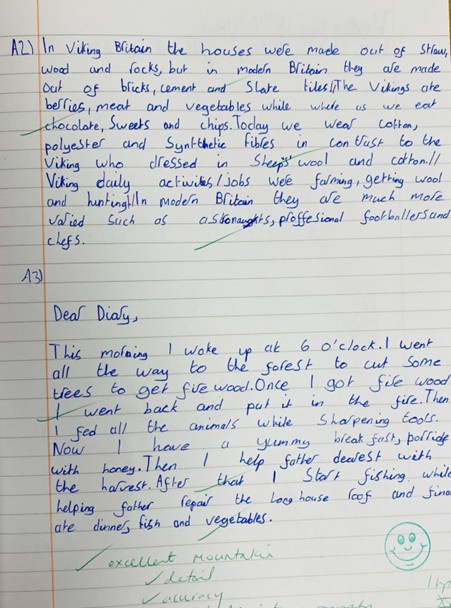 A2) In Viking Britain the houses were made out of straw,
wood and rocks, but in modern Britain they are made
out of bricks, cement and Slate tiles.//The Vikings ate
berries, meat and vegetables while us we eat
chocolate, Sweets and chips. Today we wear cotton,
polyester and Syntthetic fibres in contrast to the
Viking who dressed in Sheeps' wool and cotton.//
Viking daily activities/jobs were farming, getting wool
and hunting.//In modern Britain they are much more
varied such as astronaughts, proffesional footballers and
chefs.
A3)
Dear Diary,
This morning I woke up at 6 o'clock. I went
all the way to the forest to cut some
trees to get fire wood. Once I got fire wood
I went back and put it in the fire. Then
I fed all the animals while sharpening tools.
Now I have a yummy breakfast, porridge
with honey. Then I help father dearest with
the harvest. After that I start fishing while
helping father repair the long house roof and
ate dinner, fish and vegetables.
excellent
detail
accuracy
1hp